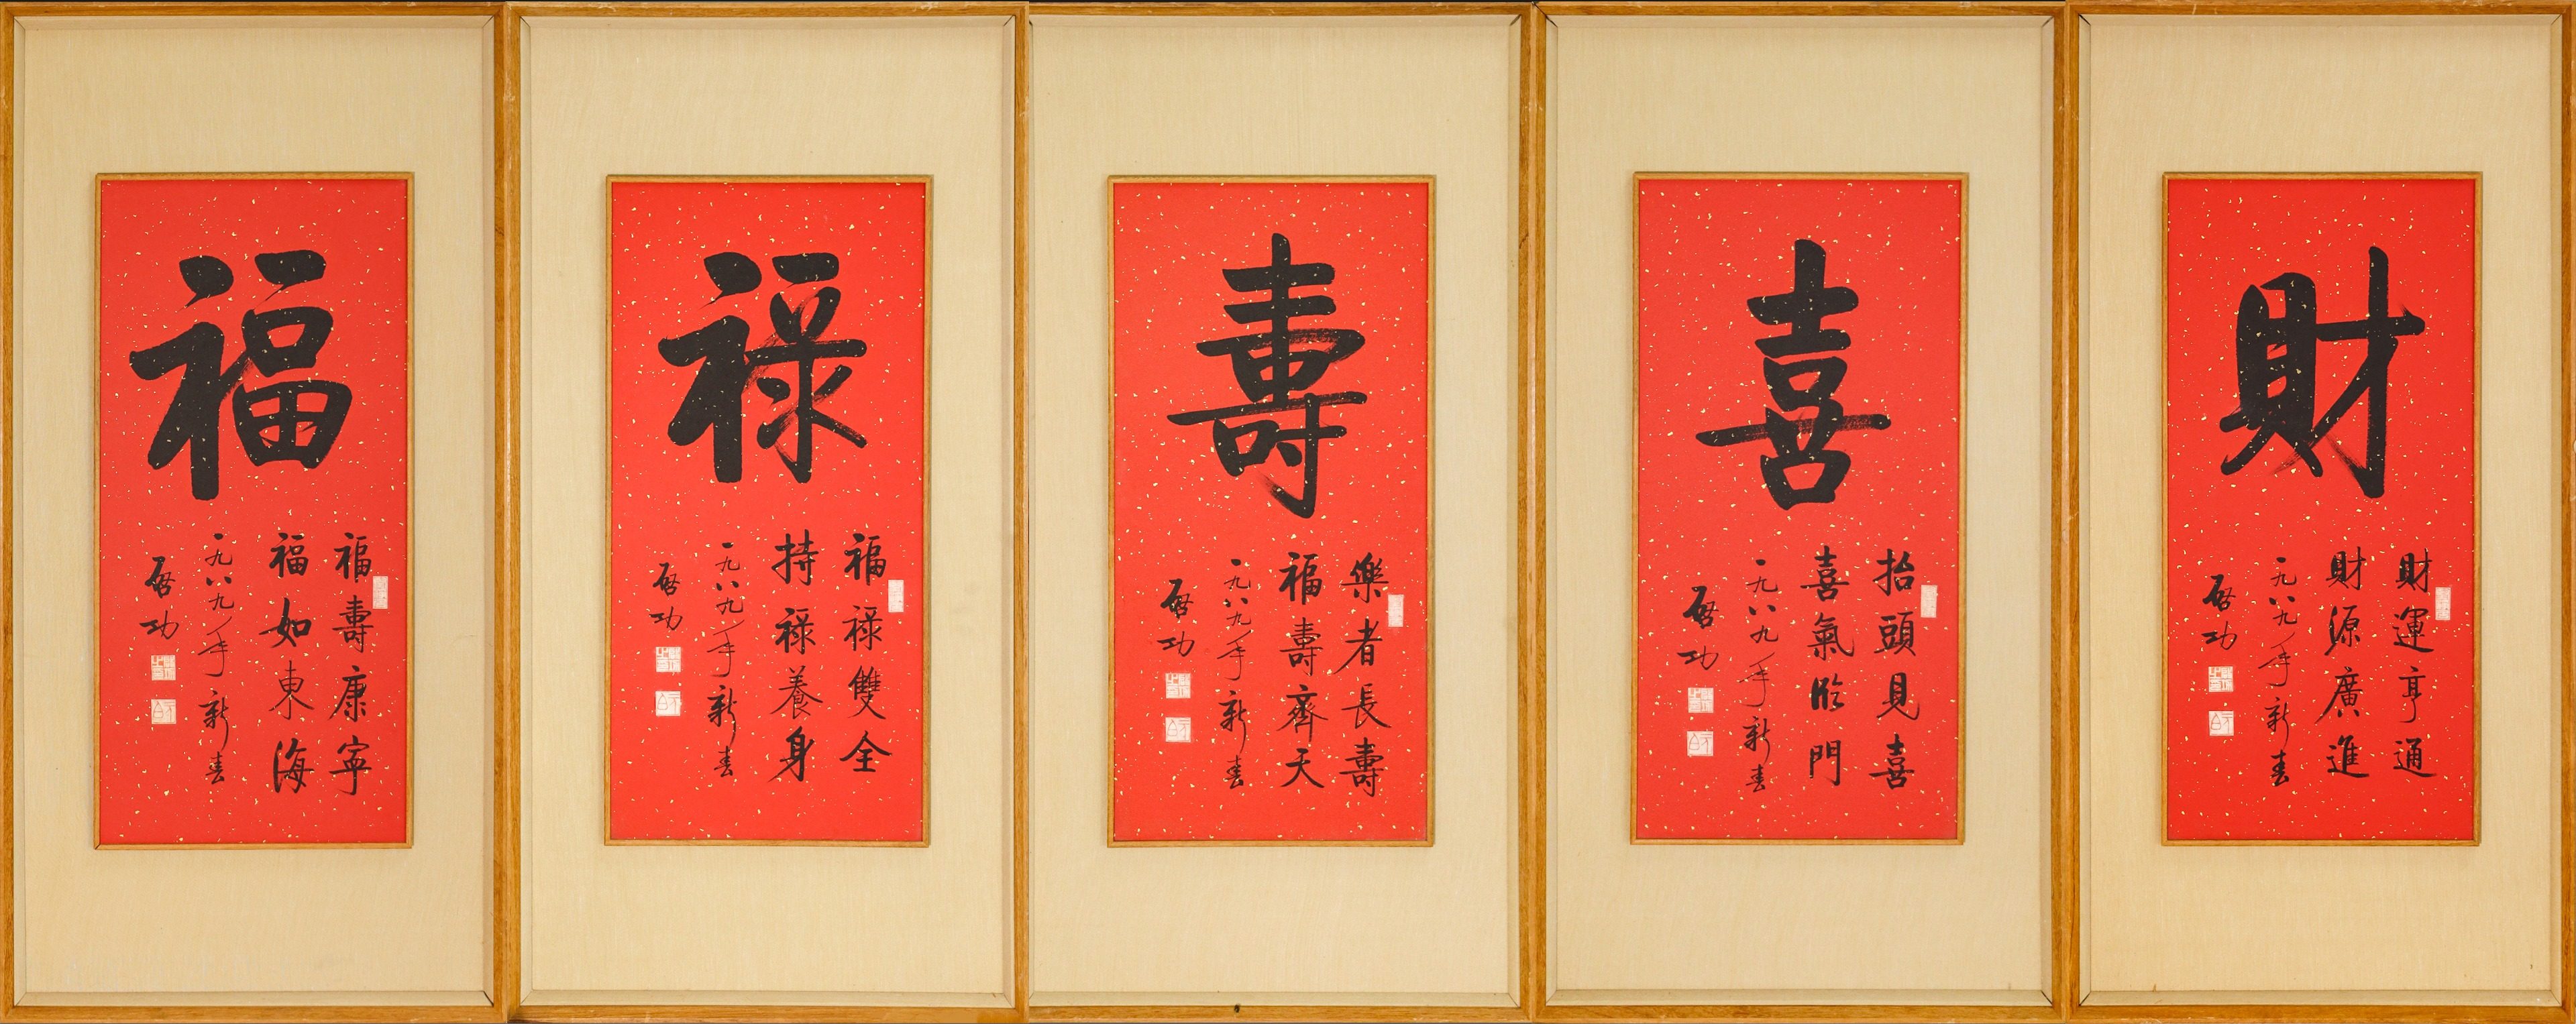 福
福壽康寧
福如東海
一九八九年新春
啟功
禄
福禄雙全
持禄養身
一九八九年新春
啟功
壽
樂者長壽
福壽齊天
一九八九年新春
啟功
喜
抬頭見喜
喜氣臨門
一九八九年新春
啟功
財
財運亨通
財源廣進
一九八九年新春
啟功